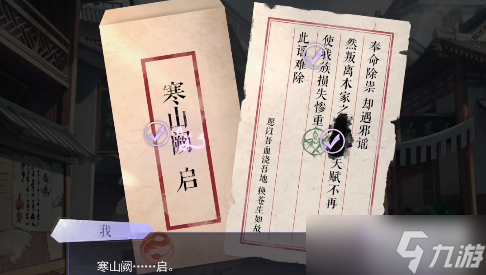 寒山阙 启
奉命除祟 却遇邪谣
然叛离本家之
天赋不再
使我族损失惨重
此谣难除
愿以吾血浇吾地 换苍生如故
我
寒山阙……启。
九游